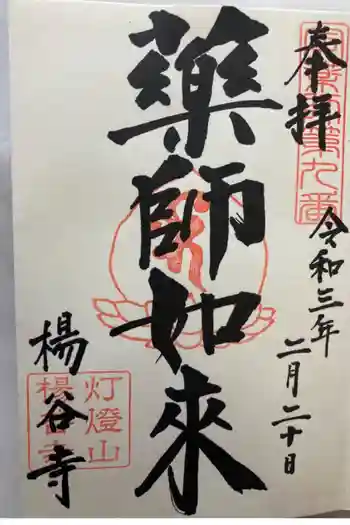 奉拝
令和三年
二月二十日
藥師如來
楊谷寺
第九番
灯燈山